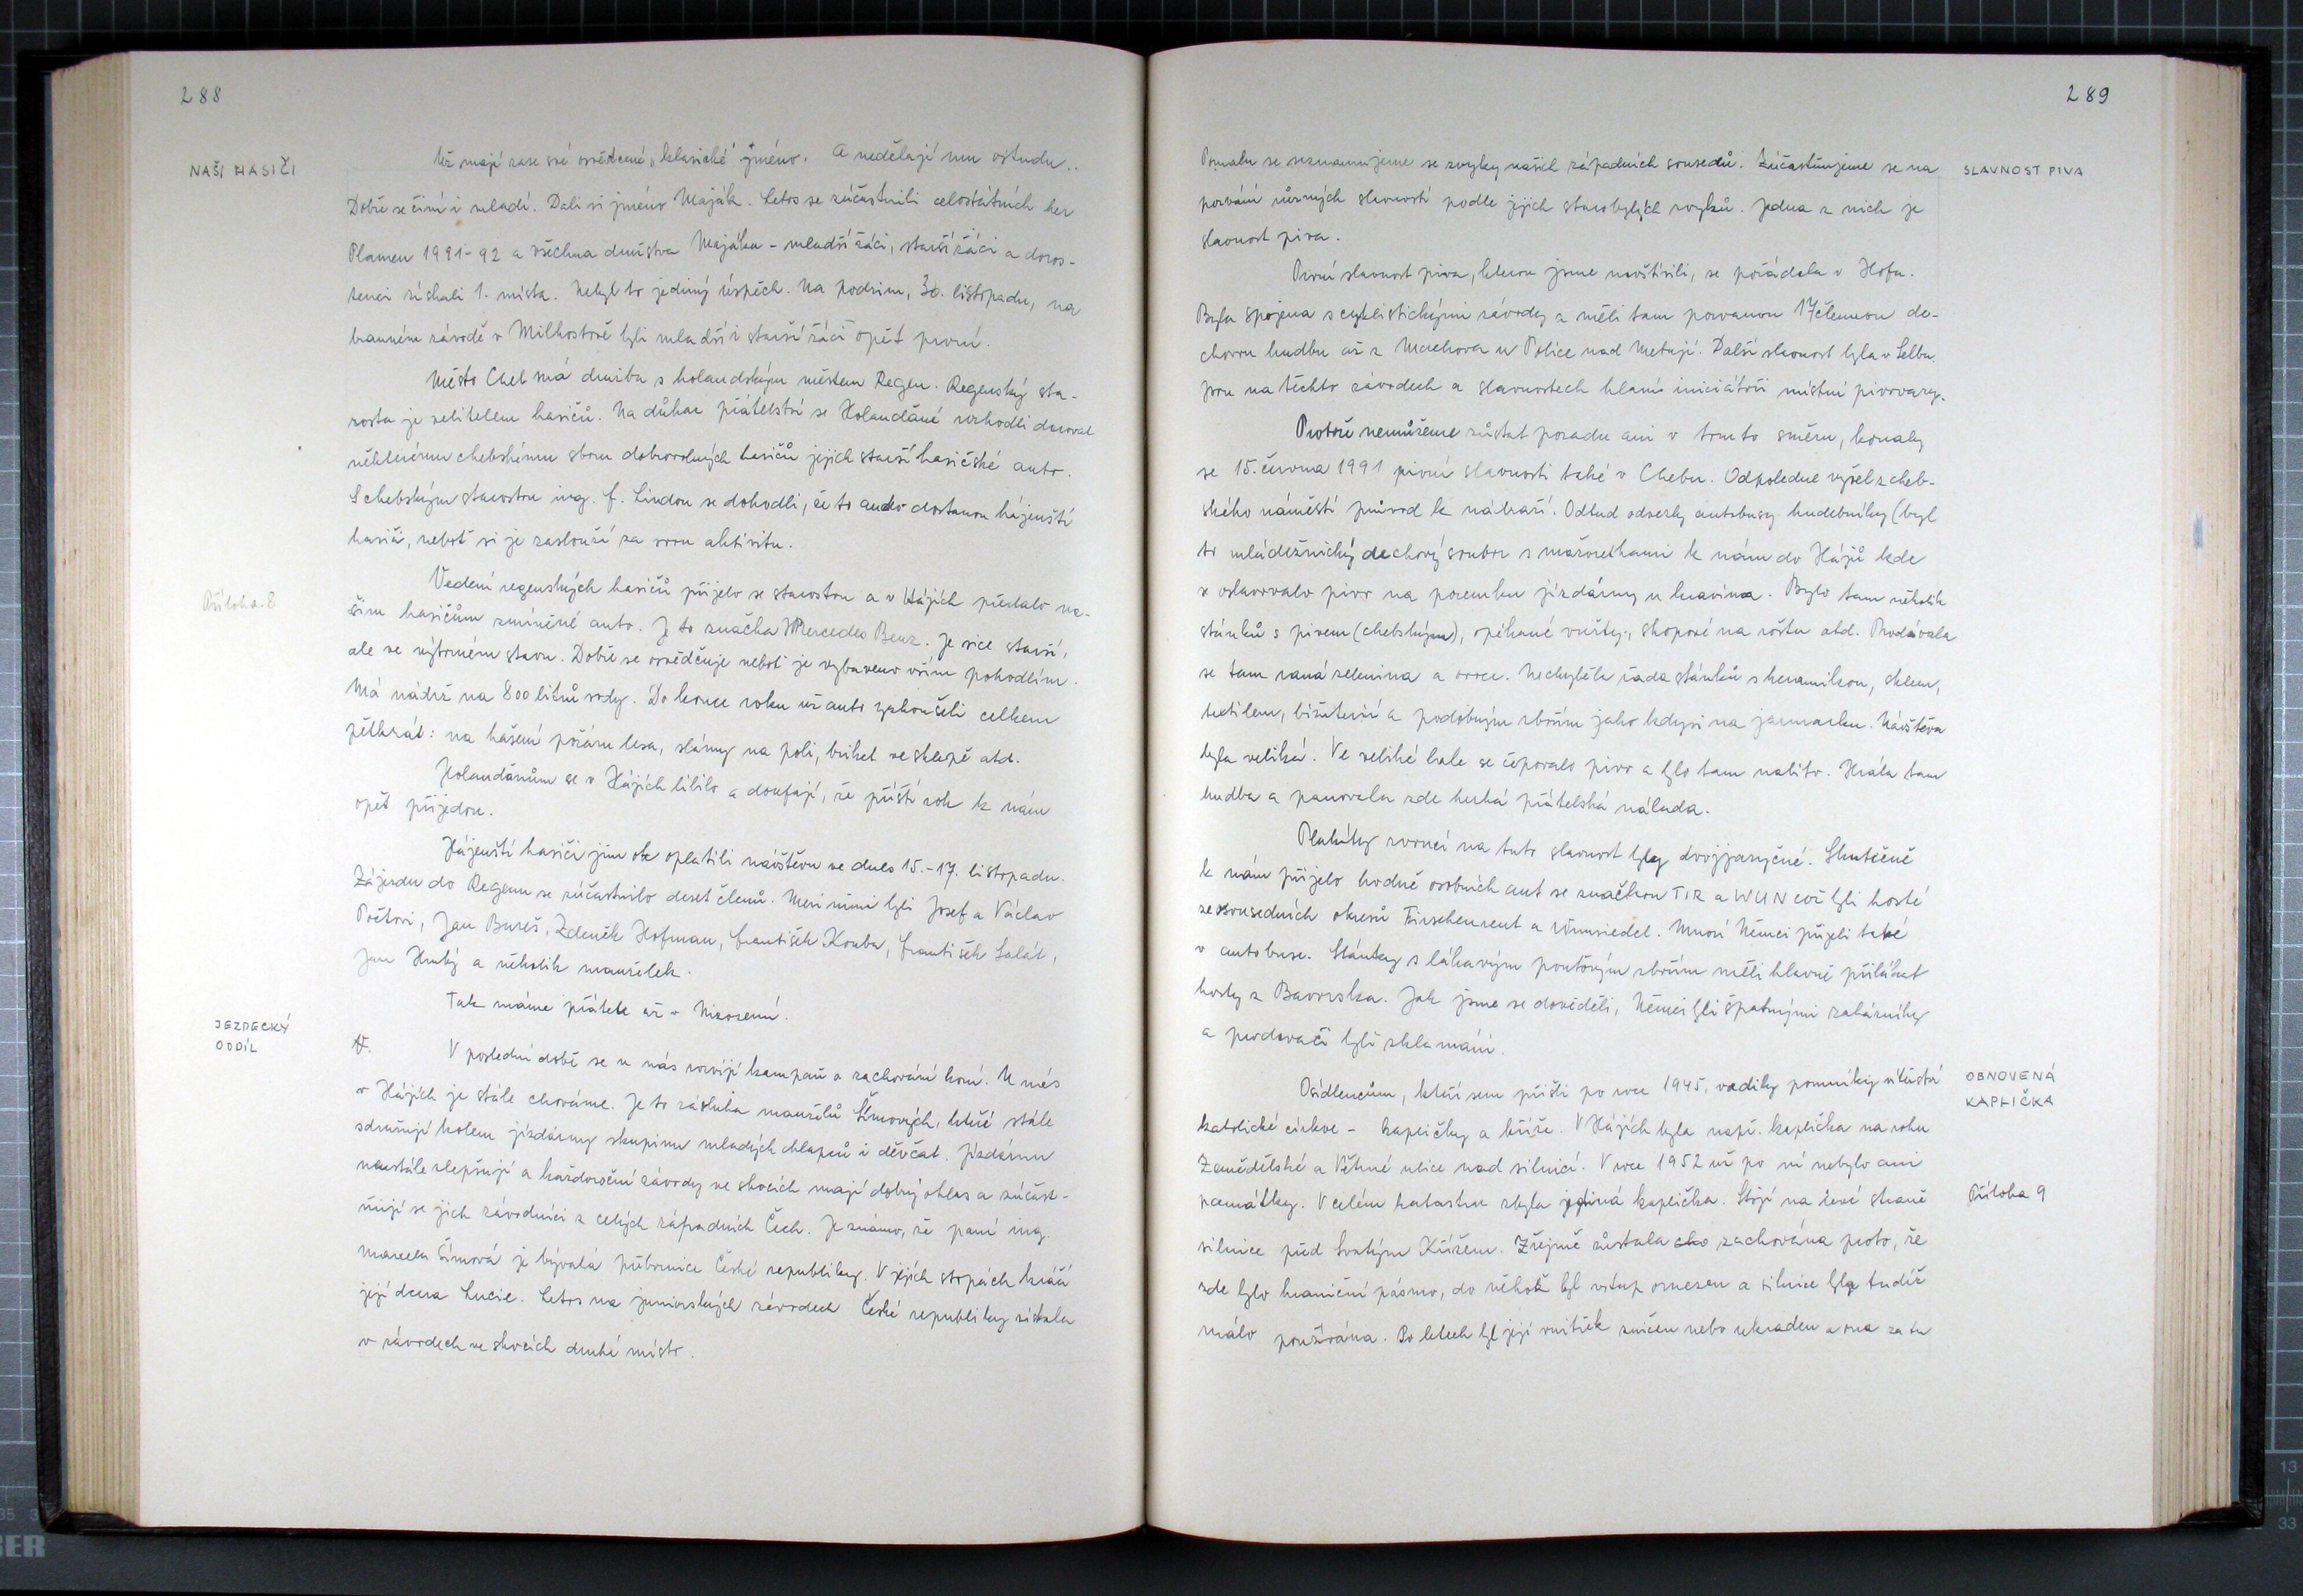 288
NAŠI HASIČI
Již mají zase své osvědčené „klasické" jméno. A nedělají mu ostudu..
Dobře se činí i mladí. Dali si jméno Maják. Letos se zúčastnili celostátních her
Plamen 1991-92 a všechna družstva Majáku - mladší žáci, starší žáci a doros-
tenci získali 1. místa. Nebyl to jediný úspěch. Na podzim, 30. listopadu, na
branném závodě v Milhostově byli mladší i starší žáci opět první.
Město Cheb má družbu s holandským městem Regen. Regenský sta-
rosta je velitelem hasičů. Na důkaz přátelství se Holanďané rozhodli darovat
některému chebskému sboru dobrovolných hasičů jejich starší hasičské auto.
S chebským starostou ing. F. Lindou se dohodli, že to auto dostanou hájenští
hasiči, neboť si je zaslouží za svou aktivitu.
Příloha 8
Vedení regenských hasičů přijelo se starostou a v Hájích předalo na-
šim hasičům zmíněné auto. Je to značka Mercedes Benz. Je sice starší,
ale ve výborném stavu. Dobře se osvědčuje neboť je vybaveno vším pohodlím.
Má nádrž na 800 litrů vody. Do konce roku už auto vyzkoušeli celkem
pětkrát: na hašení požáru lesa, slámy na poli, briket ve sklepě atd.
Holanďanům se v Hájích líbilo a doufají, že příští rok k nám
opět přijedou.
Hájenští hasiči jim oplatili návštěvu ve dnech 15.-17. listopadu.
Zájezdu do Regenu se zúčastnilo deset členů. Mezi nimi byli Josef a Václav
Počtovi, Jan Bureš, Zdeněk Hofman, František Kouba, František Salát,
Jan Hrubý a několik manželek.
Tak máme přátele až v Nizozemí.
JEZDECKÝ
ODDÍL
V poslední době se u nás rozvíjí kampaň o zachování koní. U nás
v Hájích je stále chováme. Je to zásluha manželů Šímových, kteří stále
sdružují kolem jízdárny skupinu mladých chlapců i děvčat. Jízdárnu
neustále zlepšují a každoroční závody ve skocích mají dobrý ohlas a zúčast-
ňují se jich závodníci z celých západních Čech. Je známo, že paní ing.
Marcela Šímová je bývalá přebornice České republiky. V jejích stopách kráčí
její dcera Lucie. Letos na juniorských závodech České republiky získala
v závodech ve skocích druhé místo.
289
SLAVNOST PIVA
Pomalu se seznamujeme se zvyky našich západních sousedů. Zúčastňujeme se na
pozvání různých slavností podle jejich starobylých zvyků. Jedna z nich je
slavnost piva.
První slavnost piva, kterou jsme navštívili, se pořádala v Hofu.
Byla spojena s cyklistickými závody a měli tam pozvanou 17člennou de-
chovou hudbu až z Machova u Police nad Metují. Další slavnost byla v Selbu.
Jsou na těchto závodech a slavnostech hlavní iniciátoři místní pivovary.
Protože nemůžeme zůstat pozadu ani v tomto směru, konaly
se 15. června 1991 pivní slavnosti také v Chebu. Odpoledne vyšel z cheb-
ského náměstí průvod k nádraží. Odtud odvezly autobusy hudebníky (byl
to mládežnický dechový soubor s mažoretkami k nám do Hájů kde
se oslavovalo pivo na pozemku jízdárny u kravína. Bylo tam několik
stánků s pivem (chebským), opékané vuřty, skopové na roštu atd. Prodávala
se tam raná zelenina a ovoce. Nechyběla řada stánků s keramikou, sklem,
textilem, bižuterií a podobným zbožím jako kdysi na jarmarku. Návštěva
byla veliká. Ve veliké hale se čepovalo pivo a bylo tam nabito. Hrála tam
hudba a panovala zde hezká přátelská nálada.
Plakáty zvoucí na tuto slavnost byly dvojjazyčné. Skutečně
k nám přijelo hodně osobních aut se značkou TIR a WUN což byli hosté
ze sousedních okresů Tirschenreut a Wunsiedel. Mnozí Němci přijeli také
v autobuse. Stánky s lákavým pouťovým zbožím měli hlavně přilákat
hosty z Bavorska. Jak jsme se dověděli, Němci byli špatnými zákazníky
a prodavači byli zklamáni.
OBNOVENÁ
KAPLIČKA
Osídlencům, kteří sem přišli po roce 1945, vadily pomníky
katolické církve - kapličky a kříže. V Hájích byla např. kaplička na rohu
Zemědělské a Pěkné ulice nad silnicí. V roce 1952 už po ní nebylo ani
památky. V celém katastru zbyla jediná kaplička. Stojí na levé straně
Příloha 9
silnice před Svatým Křížem. Zřejmě zůstala zachována proto, že
zde bylo hraniční pásmo, do něhož byl vstup omezen a silnice byla tudíž
málo používána. Po letech byl její vnitřek zničen nebo ukraden a ona za tu